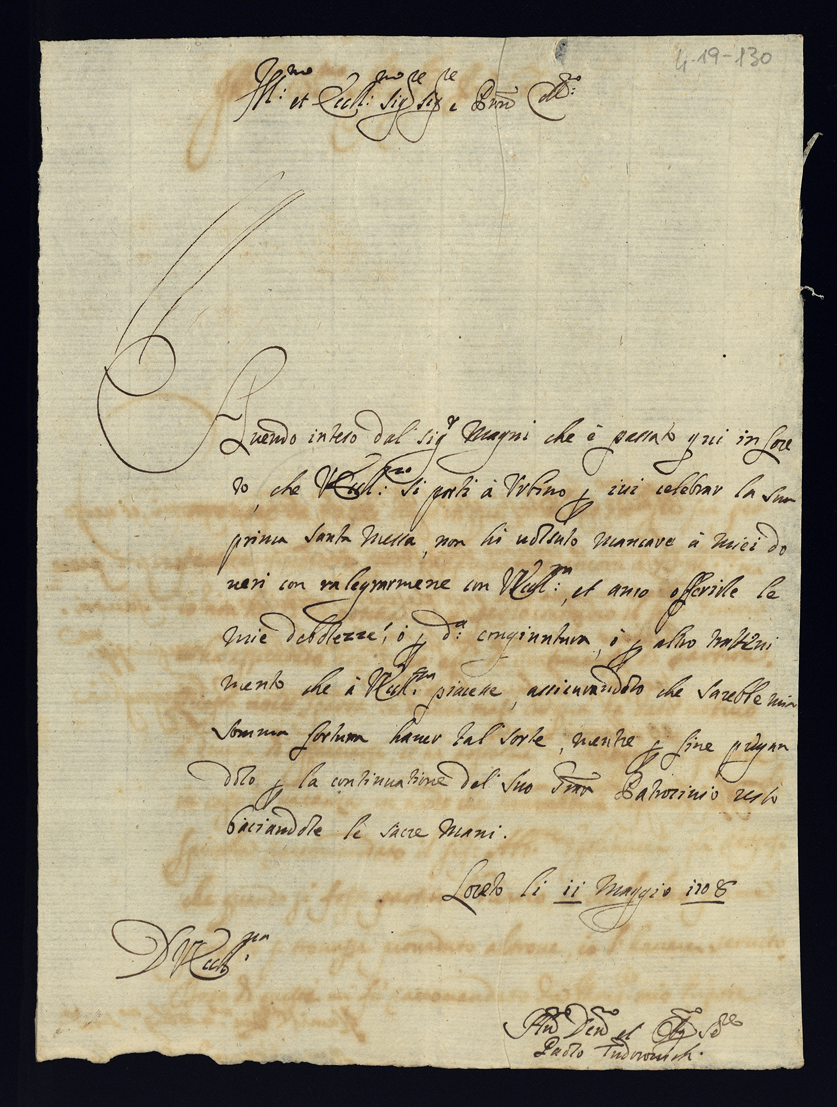 4-19-130
Ill:mo et Eccll:mo Sig.re Sig.re e Pron Coll:mo
Havendo inteso dal Sig.r Magni che è passato qui in Lore
to, che V.Eccll:za si porti à Urbino p ivi celebrar la sua
prima Santa Messa, non hò volsuto mancare à miei do
veri con ralegrarmene con V.Eccll:za, et anco offerirle le
mie debolezze, ò p d.a congiuntura, ò p altro trattini
mento che à V.Eccll.za piacese, assicurandolo che sarebbe mia
somma fortuna haver tal sorte, mentre p fine pregan
dolo p la continuatione del suo Patrocinio resto
baciandole le sacre Mani.
Loreto li 11 Maggio 1708
D V.Eccll:za
Hu.mo Dev.mo et Ob.mo Se.re
Paolo